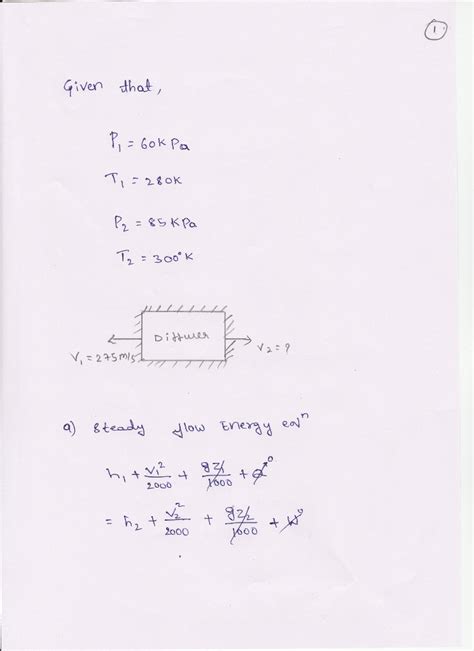 1
Given that,
P₁ = 60KPa
T₁ = 280K
P₂ = 85KPa
T₂ = 300°K
Diffuser
V₁ = 275m/s
V₂ = ?
a) Steady flow Energy eqⁿ
h₁ + V₁²/2000 + gz₁/1000 + Q⁰
= h₂ + V₂²/2000 + gz₂/1000 + W⁰